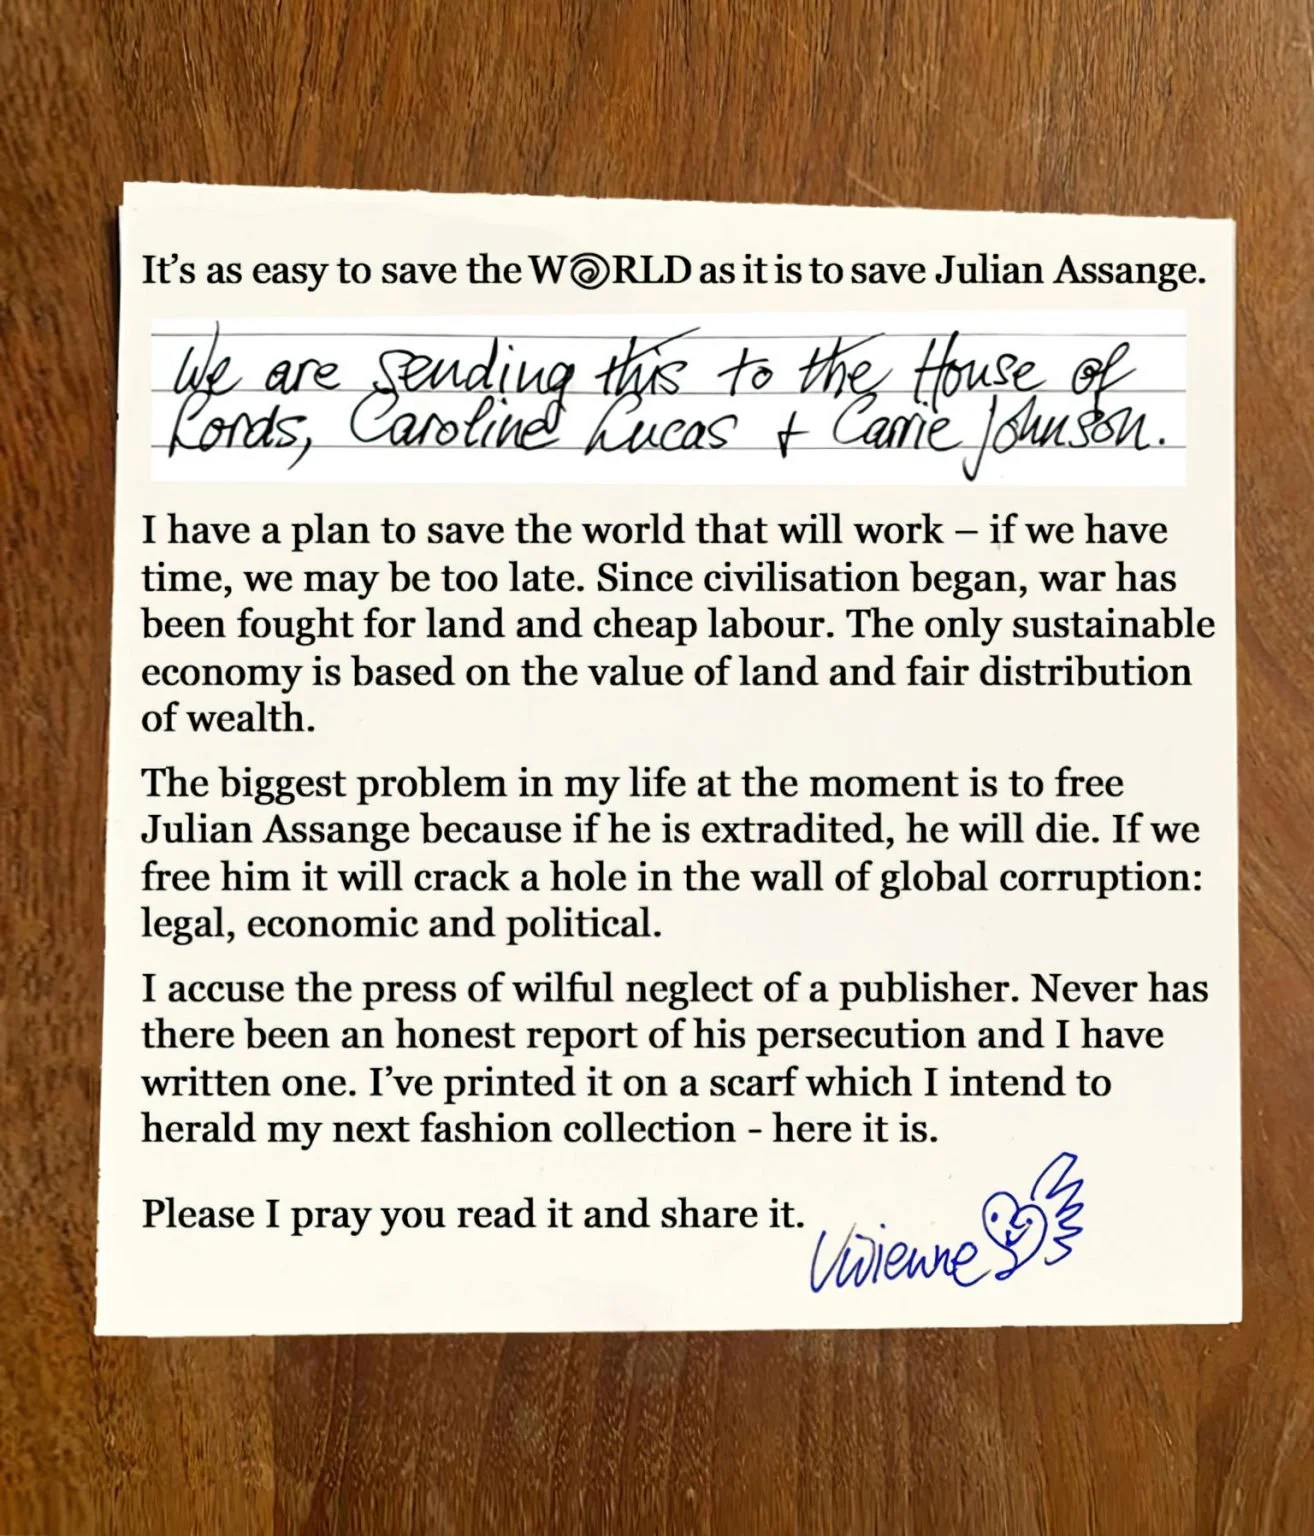 It's as easy to save the W@RLD as it is to save Julian Assange.
We are sending this to the House of
Lords, Caroline Lucas + Carrie Johnson.
I have a plan to save the world that will work – if we have
time, we may be too late. Since civilisation began, war has
been fought for land and cheap labour. The only sustainable
economy is based on the value of land and fair distribution
of wealth.
The biggest problem in my life at the moment is to free
Julian Assange because if he is extradited, he will die. If we
free him it will crack a hole in the wall of global corruption:
legal, economic and political.
I accuse the press of wilful neglect of a publisher. Never has
there been an honest report of his persecution and I have
written one. I've printed it on a scarf which I intend to
herald my next fashion collection - here it is.
Please I pray you read it and share it.
Vivienne